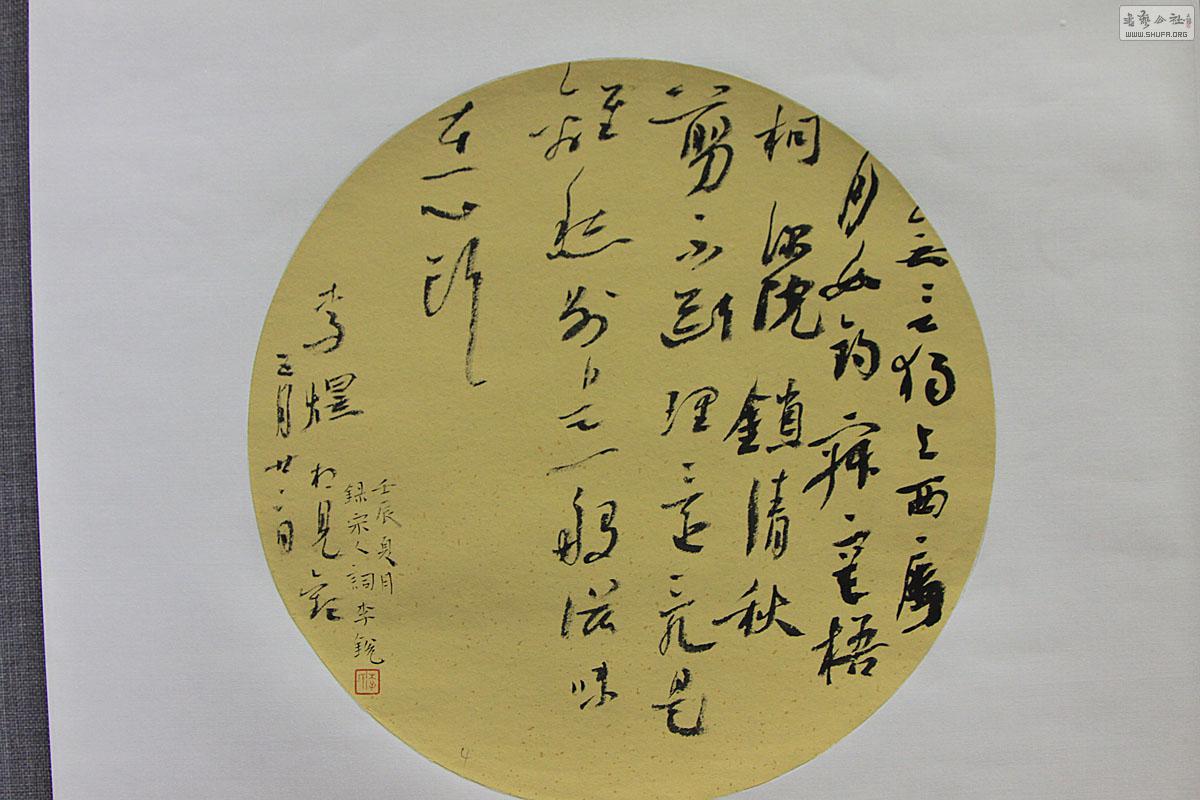 無言獨上西廔
月如鈎寂寞梧
桐深院鎖清秋
剪不斷理還亂是
離愁別是一般滋味
在心頭
李煜 相見歡
月廿日
壬辰夏月
錄宋人詞李銳
4
書藝公社
WWW.SHUFA.ORG